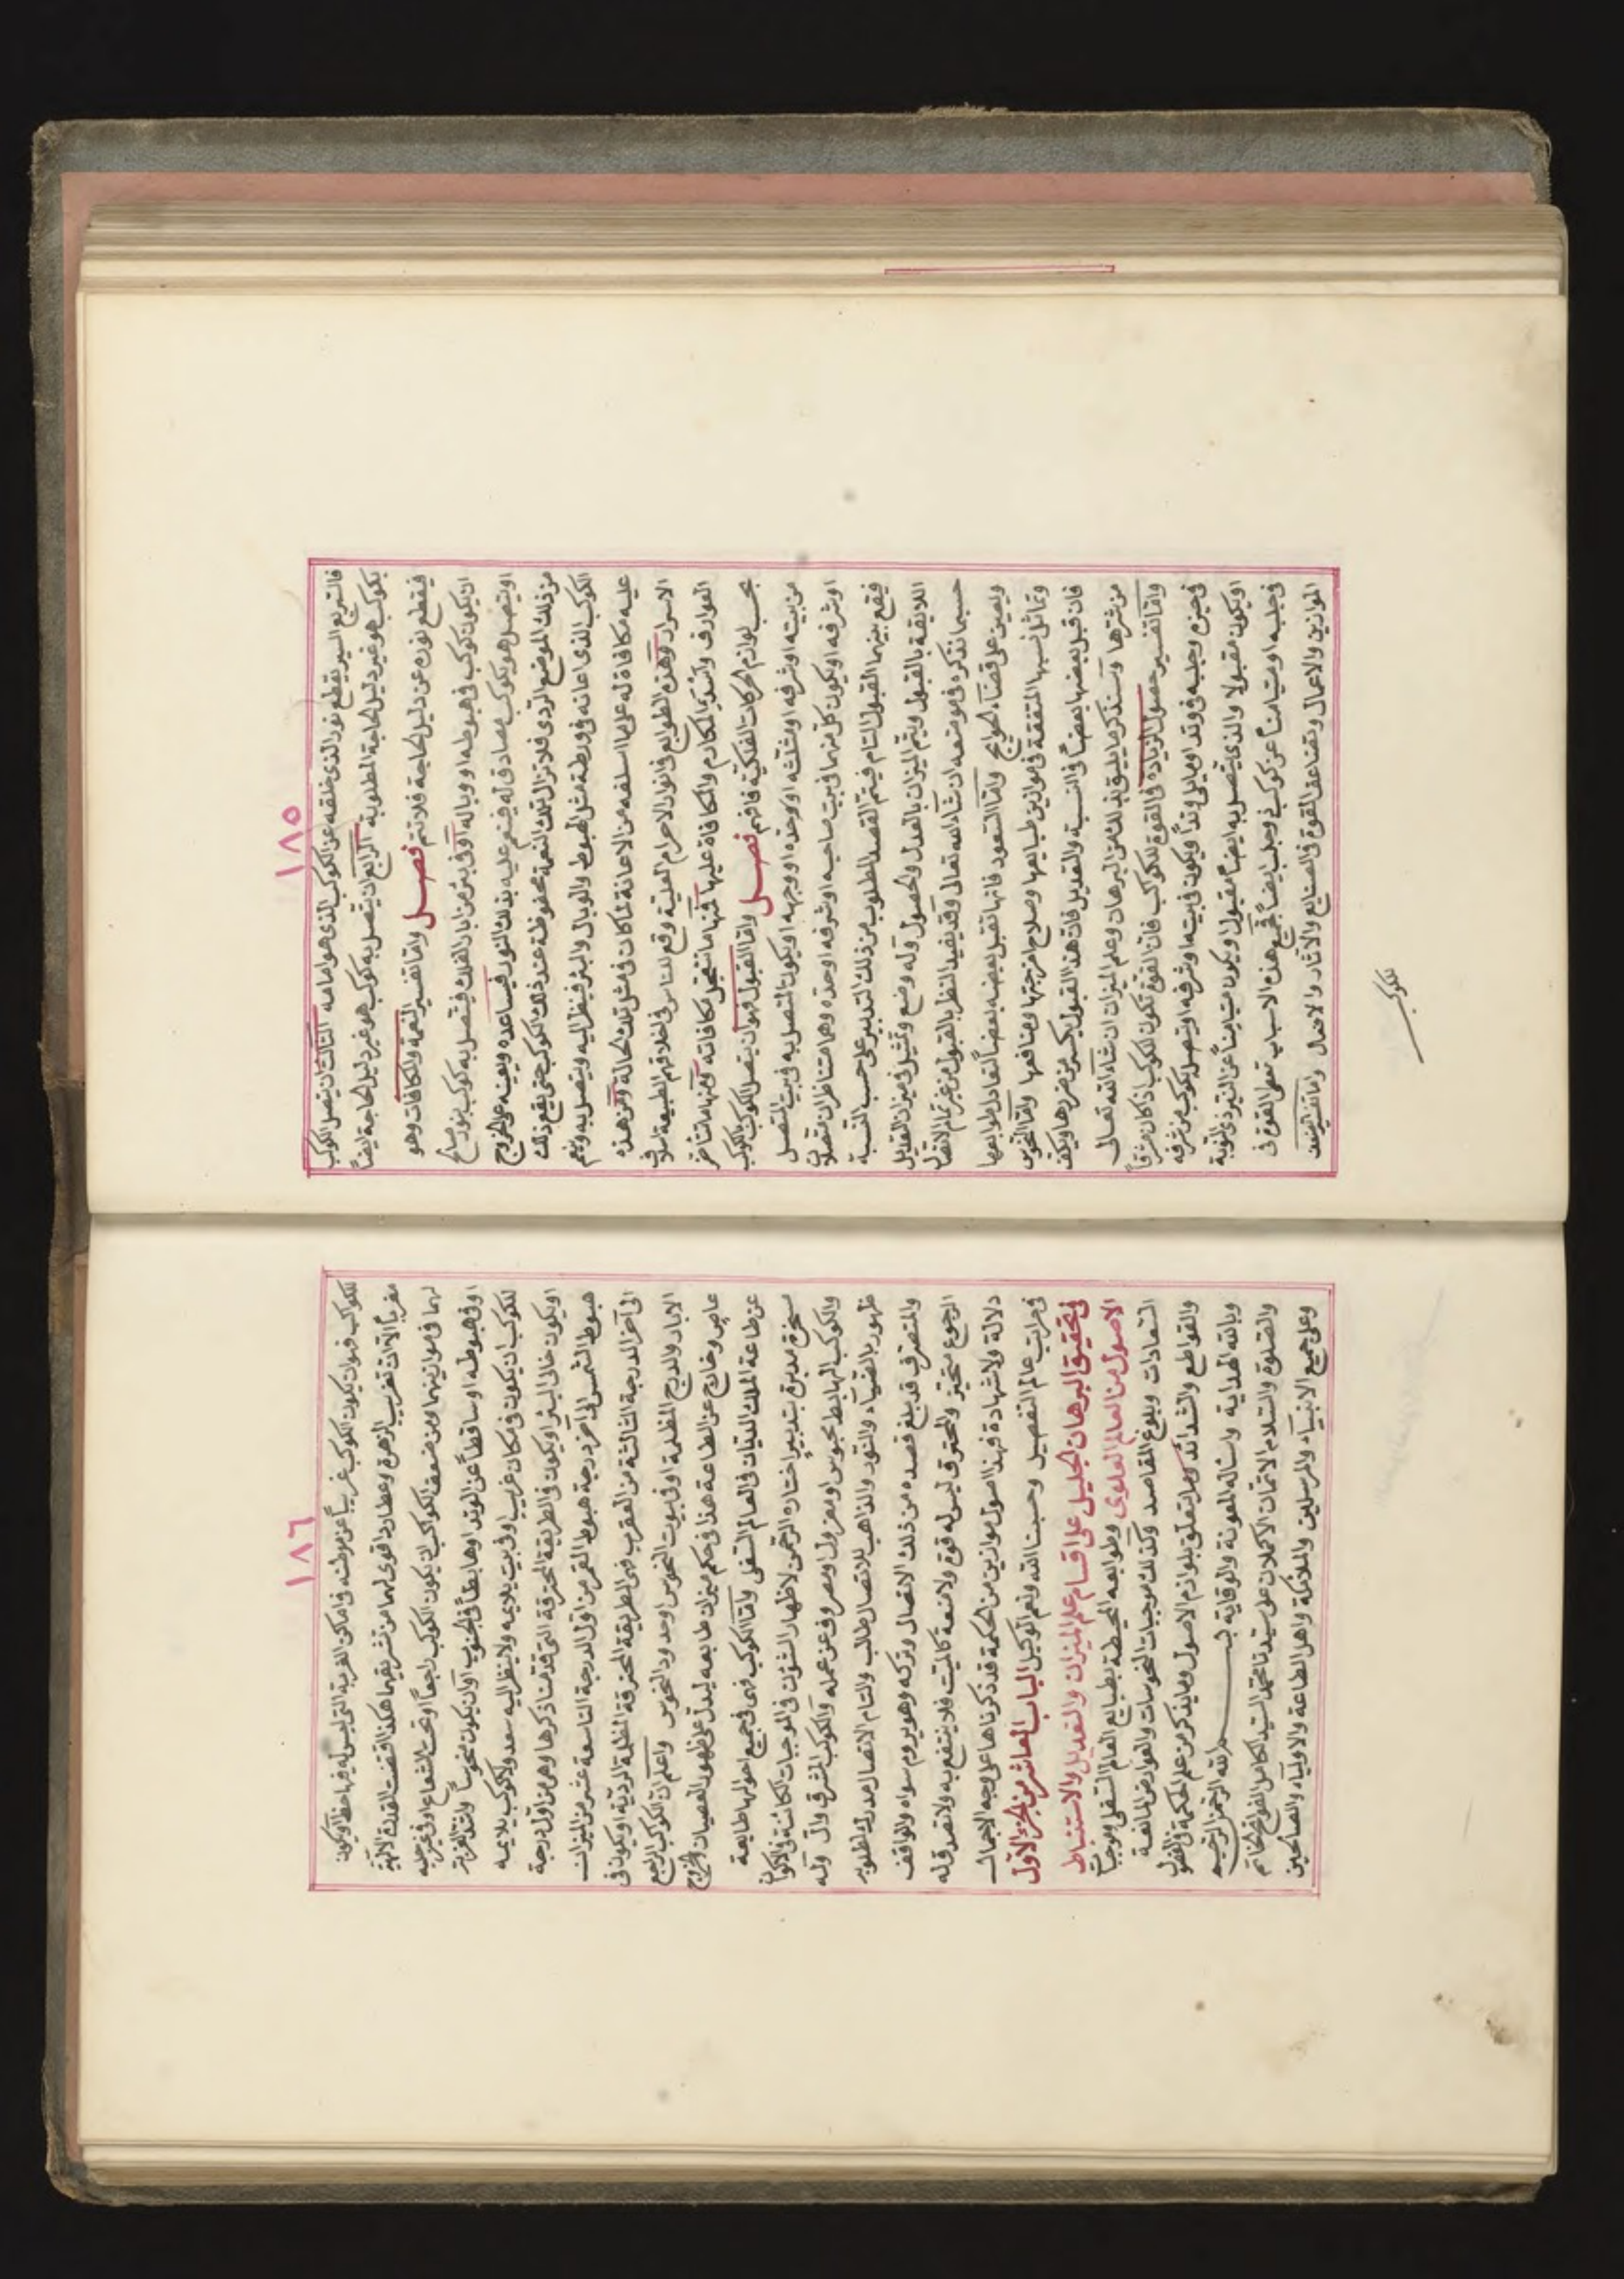 ١٨٥
فالسريع السير يقطع نور الذي خلفه عن الكوكب الذي هو امامه الثالث ان يتصل الكوكب
بكوكب هو غير دليل الحاجة المطلوبة الرابع ان يتصل به كوكب هو غير دليل الحاجة ايضاً
فيقطع نوره عن دليل الحاجة فلا تتم فصل واما تفسير النعمة والمكافات وهو
ان يكون كوكب في هبوطه او وباله او في بئر من ابار الفلك فيتصل به كوكب بنور صالح
او يتصل هو بكوكب مصادق له فينعم عليه بذلك النور فيساعده ويعينه على الخروج
من ذلك الموضع الردي فلا تزال تلك النعمة محفوظة عند ذلك الكوكب حتى يقع ذلك
الكوكب الذي اعانه في ورطة مثل الهبوط والوبال والبئر فينظر اليه ويتصل به وينعم
عليه مكافاة له على ما اسلفه من الاعانة لما كان في مثل تلك الحالة ومن هذه
الاسرار وهذه الطوابع في انوار الاجرام العلوية وقع للناس في اخلاقهم الطبيعة اسلاف
العوارف المكارم والمكافاة عليها فمنها ما تتعجل مكافاته ومنها ما تتاخر
بحسب لوازم الحركات الفلكية فافهم فصل واما القبول فهو ان يتصل الكوكب بالكوكب
من بيته او شرفه او مثلثه او حده او وجهه او يكون المتصل به في بيت المتصل
او شرفه او يكون كل منهما في بيت صاحبه او شرفه او حده وهما متناظران متصلان
فيقع بينهما القبول التام فيتم القصد المطلوب من ذلك التدبير على حسب النسبة
اللائقة بالقبول ويتم الميزان بالعدل والحصول وله وضع وتمثيل في ميزان التعديل
حسبما نذكره في موضعه ان شاء الله تعالى وقد يفيد النظر بالقبول من غير تمام الاتصال
ويعين على قضاء الحوايج واما السعود فانها تقبل بعضها بعضاً لتعادل طوابعها
وتماثل نسبها المتفقة في موازين طبايعها وصلاح امزجتها ومنافعها واما النحوس
فان قبل بعضها بعضاً في النسبة والتعديل فان هذا القبول يكسر من ضررها ويكف
من شرها وسنذكر ما يليق بذلك من البرهان وعلم الميزان ان شاء الله تعالى
واما تفسير حصول الزيادة في القوة للكوكب فان القوة تكون للكوكب اذا كان مشرقاً
في حيزه وجلبه في وتد او مايلي وتداً ويكون في بيته او شرفه او يتصل بكوكب من شرفه
او يكون مقبولا والذي يتصل به ايضاً مقبول او يكون
في جلبه فجميع هذه الاسباب تعطي القوة في
الموازين والاعمال وتضاعف القوة في الصنايع والاثار والاحمال واما تفسير الضعف
للكوكب
١٨٦
للكوكب فهو ان يكون الكوكب غريباً عن موطنه في اماكن الغربة التي ليس له فيها حظ او يكون
مغرباً الا ان تغريب الزهرة وعطارد اقوى لهما من تشريقهما هكذا اقتضت القدرة الالهية
لهما في موازينهما ومن ضعف الكواكب ان يكون الكوكب راجعاً او تحت الشعاع او في غير جلبه
او في هبوطه او ساقطاً عن الوتد او هابطاً في الجنوب او ان يكون منحوساً
للكوكب ان يكون في مكان غريب او في بيت يلايمه ولا ينظر اليه سعد ولا كوكب يلايمه
او يكون خالي السير او يكون في الطريقة المحترقة التي قدمنا ذكرها وهي من اول درجة
هبوط الشمس الى اخر درجة هبوط القمر من اول الدرجة التاسعة عشر من الميزان
الى آخر الدرجة الثالثة من العقرب فهي الطريقة المحترقة المظلمة الردية او يكون في
الابار والدرج المظلمة او في بيوت النحوس او حدود النحوس واعلم ان الكوكب الراجع
عاص وخارج عن الطاعة هذا في حكم ميزان طابعه ليدل على ظهور العصيان والخروج
عن طاعة الملك الديان في العالم السفلي واما الكوكب فهي في جميع احوالها طايعة
مسخرة مدبرة بتدبير اختاره الرحمن لاظهار الشؤن في الموجبات الكائنة في الاكوان
والكوكب الهابط محبوس او معزول او مصروف عن عمله والكوكب المشرق وال وله
ظهور بالضياء والنور والذاهب للاتصال طالب والتام الاتصال مدرك لمطلوبه
والمنصرف قد بلغ قصده من ذلك الاتصال وتركه وهو يروم سواه والواقف
الرجوع متحيز والمحترق ليس له قوة ولا منعة كالميت فلا ينتفع به ولا تصدق له
دلالة ولا شهادة فهذا اصول موازين من الحكمة قد ذكرناها على وجه الاجمال
في مراتب عالم التفصيل وحسبنا الله ونعم الوكيل الباب العاشر من الجزء الاول
في تحقيق البرهان الجليل على اقسام علم الميزان والتعديل والاستنباط
الاصول من العالم العلوي وطوابعه المحيطة بطبايع العالم السفلي وموجبات
السعادات وبلوغ المقاصد وكذلك موجبات النحوسات والعوارض المانعة
والقواطع والشدائد وما يتعلق بلوازم الاصول وما يذكر من علم الحكمة في الفصول
وبالله الهداية واساله المعونة والوقاية بسم الله الرحمن الرحيم
والصلوة والسلام الاتمان الاكملان على سيدنا محمد السيد الكامل الفاتح الخاتم
وعلى جميع الانبياء والمرسلين والملائكة واهل الطاعة والاولياء والصالحين